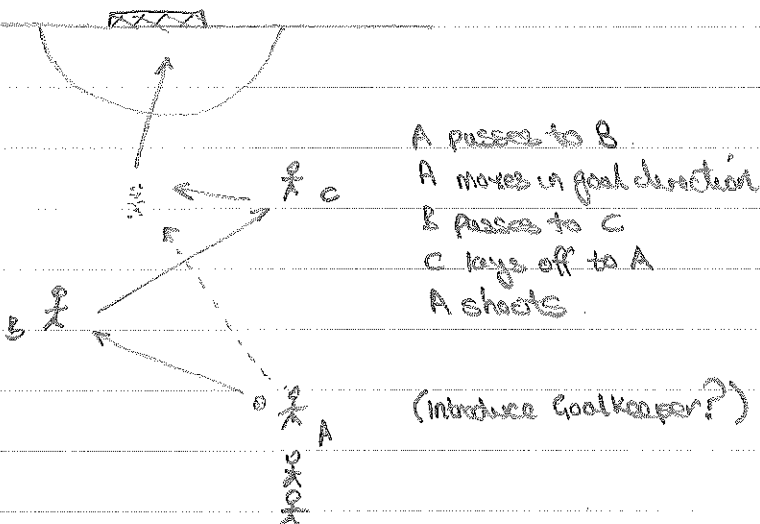 A passes to B.
A moves in goal direction
B passes to C
C lays off to A
A shoots.
(Introduce Goalkeeper?)
C
B
A